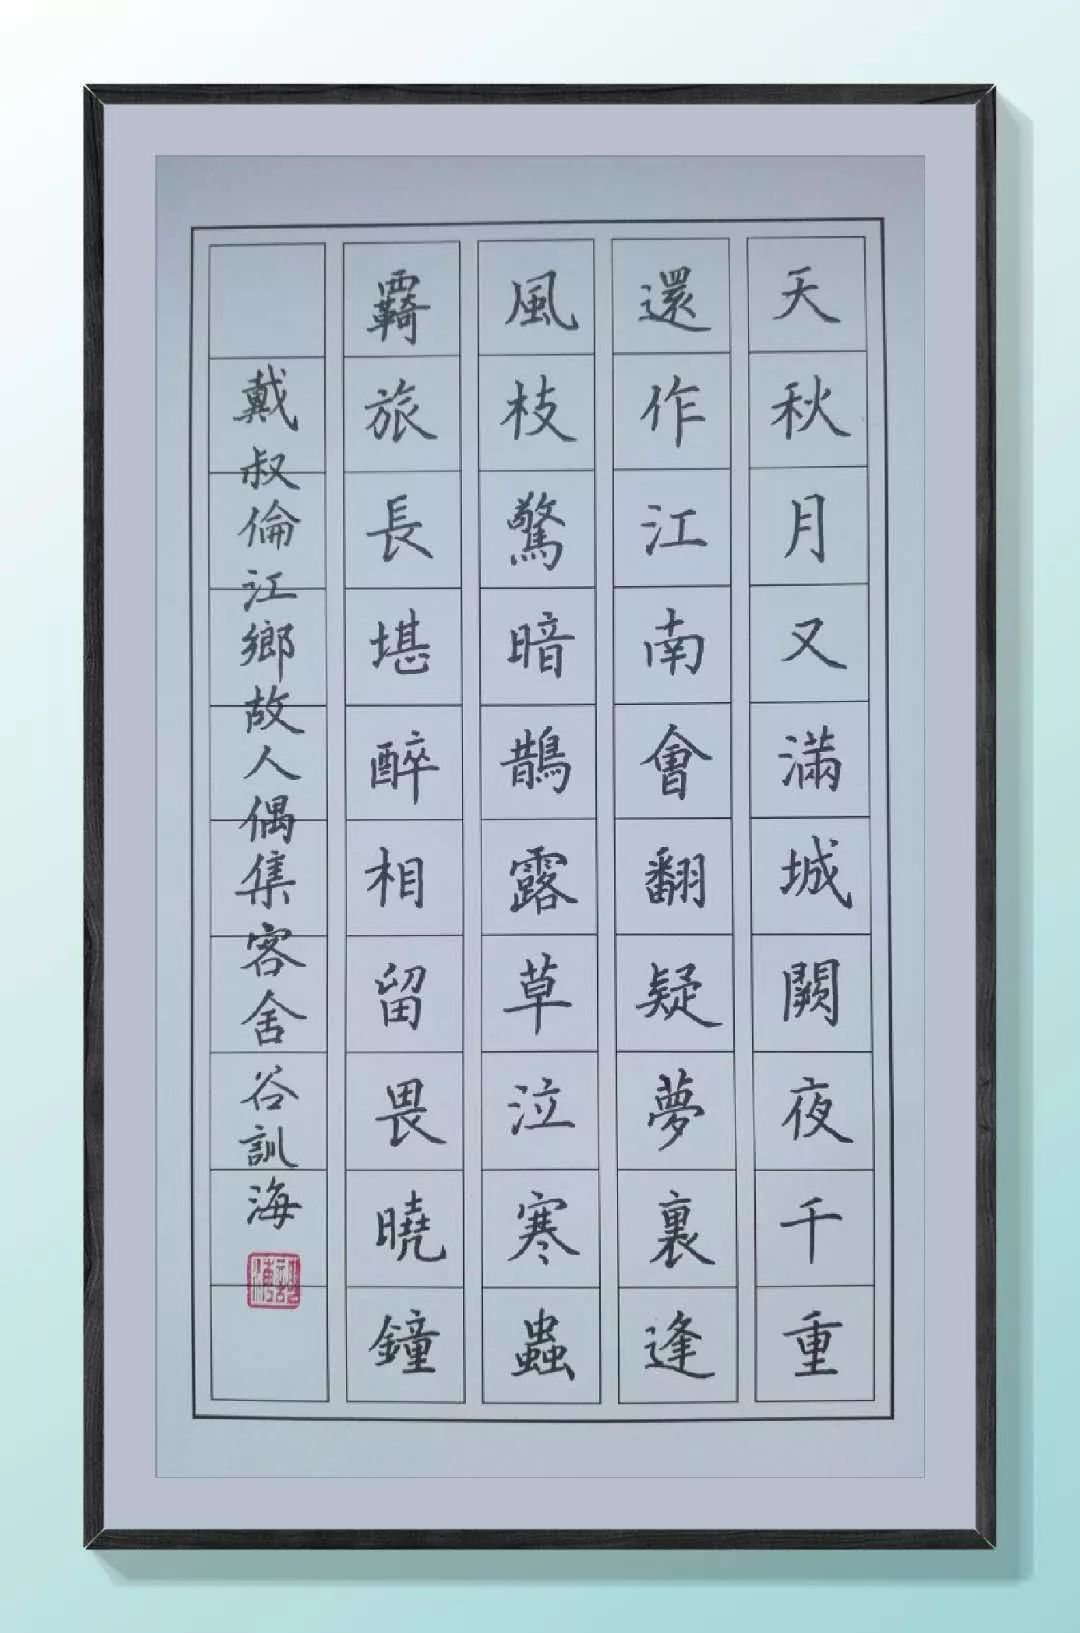 天秋月又滿城闕夜千重
還作江南會翻疑夢裏逢
風枝驚暗鵲露草泣寒蟲
羇旅長堪醉相留畏曉鐘
戴叔倫江鄉故人偶集客舍谷訓海